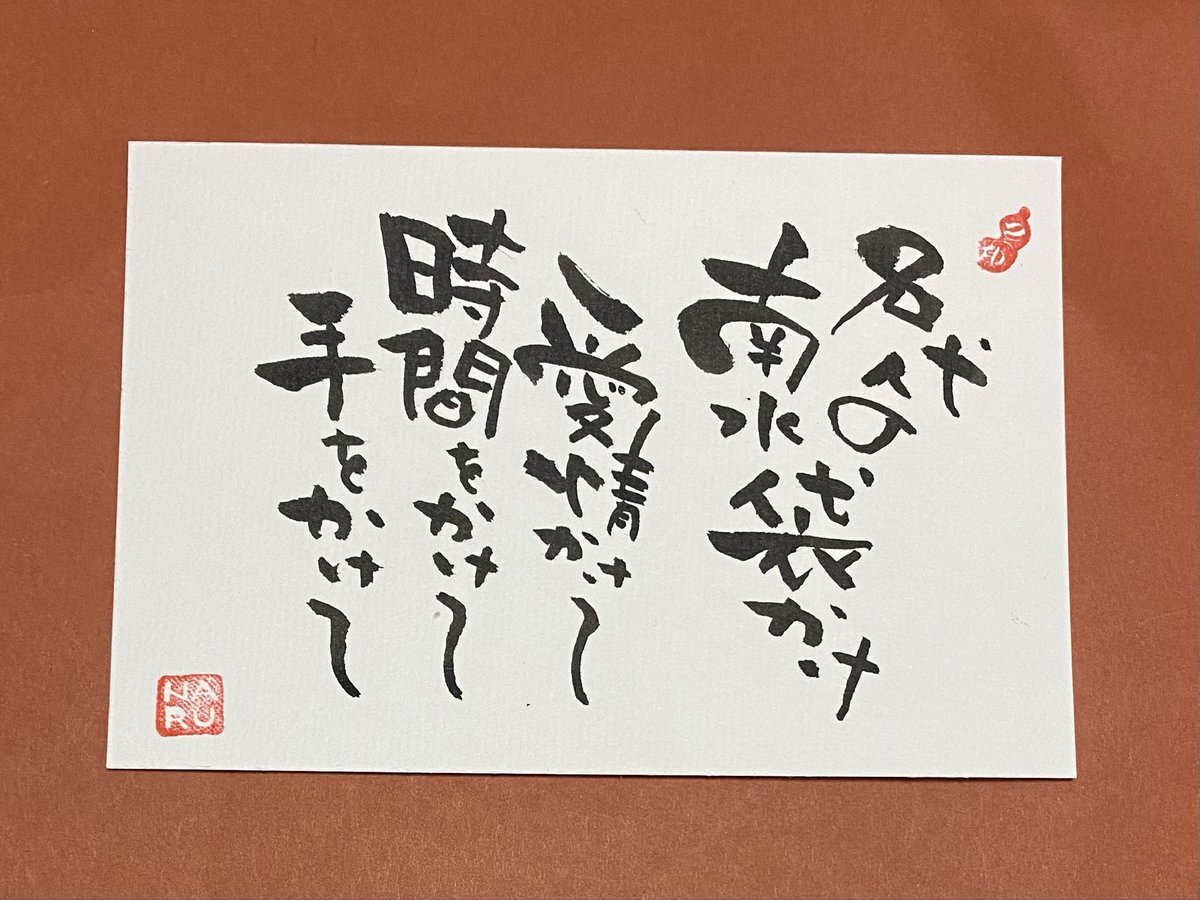 名代の
南水袋かけ
愛情かけて
時間をかけて
手をかけて
HA
RU